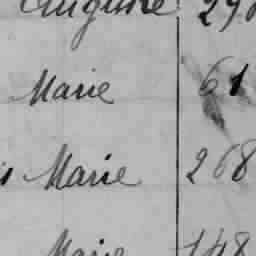 Auguste 29
Marie 61
Marie 268
Marie 148